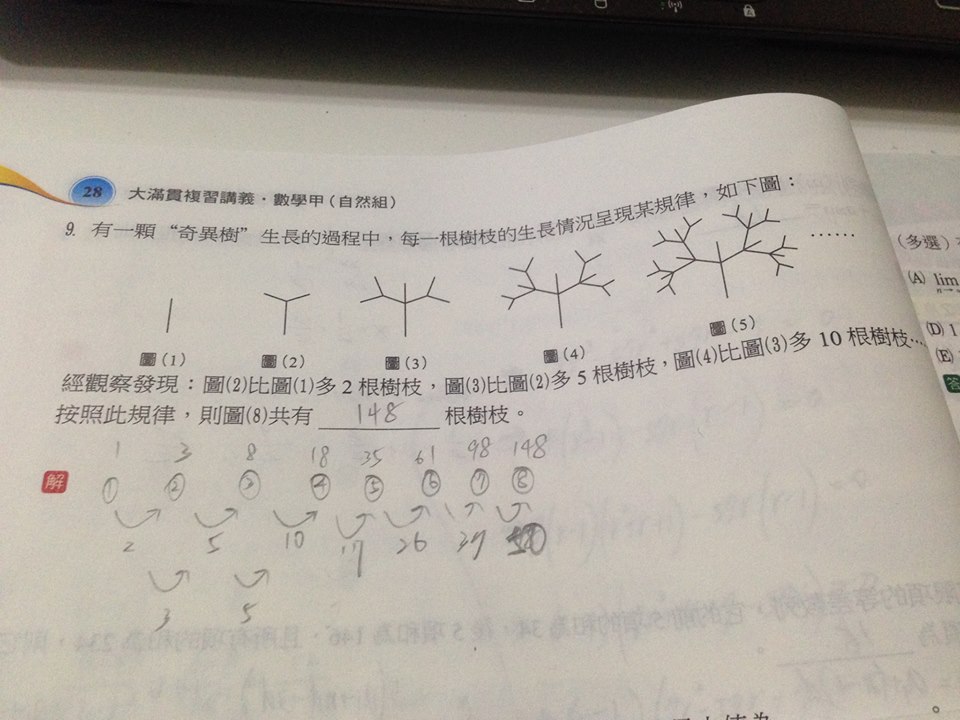 28 大滿貫複習講義・數學甲(自然組)
9. 有一顆“奇異樹”生長的過程中，每一根樹枝的生長情況呈現某規律，如下圖：
……
圖(1) 圖(2) 圖(3) 圖(4) 圖(5)
經觀察發現：圖(2)比圖(1)多2根樹枝，圖(3)比圖(2)多5根樹枝，圖(4)比圖(3)多10根樹枝…
按照此規律，則圖(8)共有 148 根樹枝。
1 3 8 18 35 61 98 148
解 ① ② ③ ④ ⑤ ⑥ ⑦ ⑧
2 5 10 17 26 37
3 5
(多選)
(A) lim
(D) 1
(E)
答